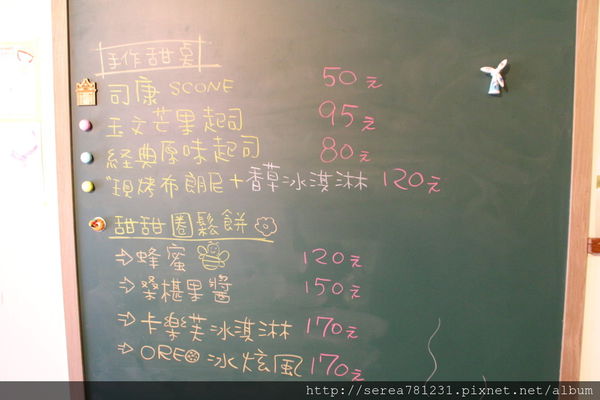 手作甜桌
司康 SCONE 50元
玉文芒果起司 95元
経典原味起司 80元
"現烤布朗尼+香草冰淇淋 120元
甜甜圈鬆餅
⇨蜂蜜 120元
⇨桑椹果醬 150元
⇨卡樂芙冰淇淋 170元
⇨OREO冰炫風 170元
http://serea781231.pixnet.net/album